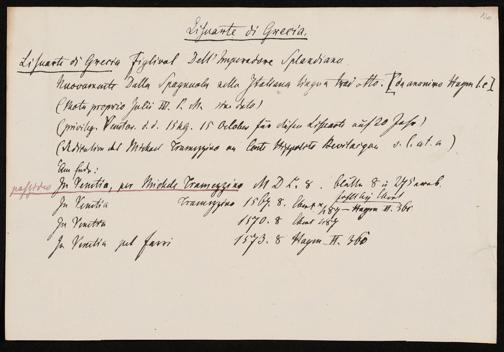 Lisuarte di Grecia.
Lisuarte di Grecia Figliuol Dell'Imperadore Splandiano
Nuovamente Dalla Spagnuola nella Italiana lingua tradotto. [da anonimo Hayn l.c.]
(Motu proprio Julii III. P. M. sine dato)
(privileg. Venetor. d. d. 1549. 15 October für diesen Lisuarte auf 20 Jahr)
(Dedication des Michael Tramezzino an Conte Hippolito s. l. et. a)
Am Ende:
In Venetia, per Michele Tramezzino M D L. 8. blätter 8 u 275
In Venetia Tramezzino 1567. 8. 187 - Haym II. 360
In Venetia 1570. 8 187
In Venetia pel Farri 1573. 8 Haym II. 360